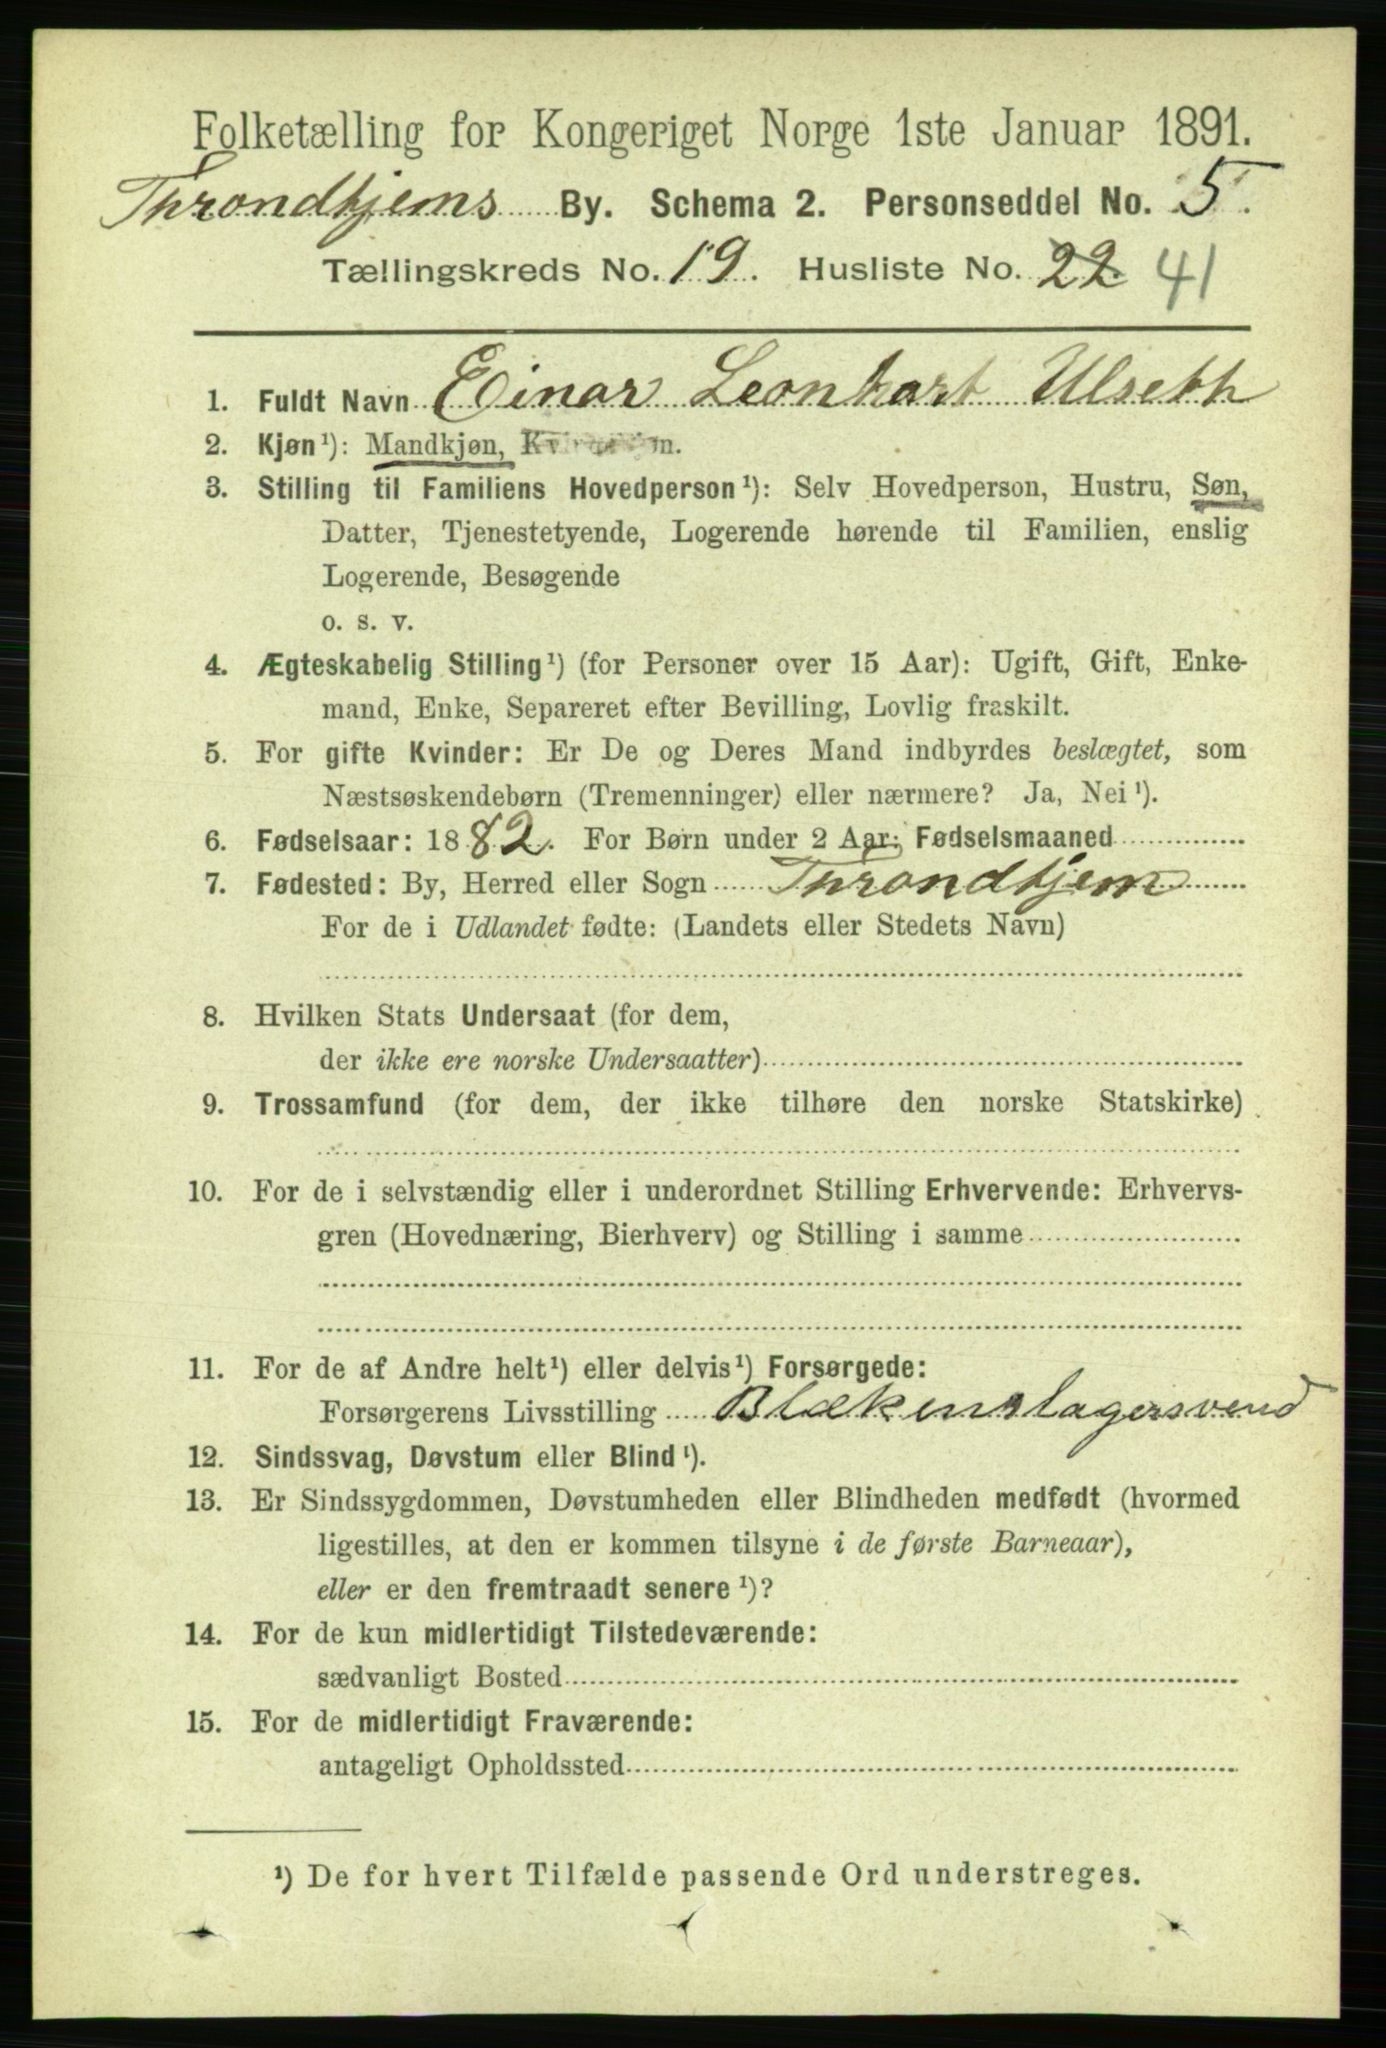 Folketælling for Kongeriget Norge 1ste Januar 1891.
Throndhjems By. Schema 2. Personseddel No. 5.
Tællingskreds No. 19. Husliste No. 22 41
1. Fuldt Navn Einar Leonhart Ulseth
2. Kjøn¹): Mandkjøn,
3. Stilling til Familiens Hovedperson¹): Selv Hovedperson, Hustru, Søn,
Datter, Tjenestetyende, Logerende hørende til Familien, enslig
Logerende, Besøgende
o. s. v.
4. Ægteskabelig Stilling¹) (for Personer over 15 Aar): Ugift, Gift, Enke-
mand, Enke, Separeret efter Bevilling, Lovlig fraskilt.
5. For gifte Kvinder: Er De og Deres Mand indbyrdes beslægtet, som
Næstsøskendebørn (Tremenninger) eller nærmere? Ja, Nei¹).
6. Fødselsaar: 1882. For Børn under 2 Aar: Fødselsmaaned
7. Fødested: By, Herred eller Sogn Throndhjem
For de i Udlandet fødte: (Landets eller Stedets Navn)
8. Hvilken Stats Undersaat (for dem,
der ikke ere norske Undersaatter)
9. Trossamfund (for dem, der ikke tilhøre den norske Statskirke)
10. For de i selvstændig eller i underordnet Stilling Erhvervende: Erhvervs-
gren (Hovednæring, Bierhverv) og Stilling i samme
11. For de af Andre helt¹) eller delvis¹) Forsørgede:
Forsørgerens Livsstilling Blikkenslagersvend
12. Sindssvag, Døvstum eller Blind¹).
13. Er Sindssygdommen, Døvstumheden eller Blindheden medfødt (hvormed
ligestilles, at den er kommen tilsyne i de første Barneaar),
eller er den fremtraadt senere¹)?
14. For de kun midlertidigt Tilstedeværende:
sædvanligt Bosted
15. For de midlertidigt Fraværende:
antageligt Opholdssted
¹) De for hvert Tilfælde passende Ord understreges.